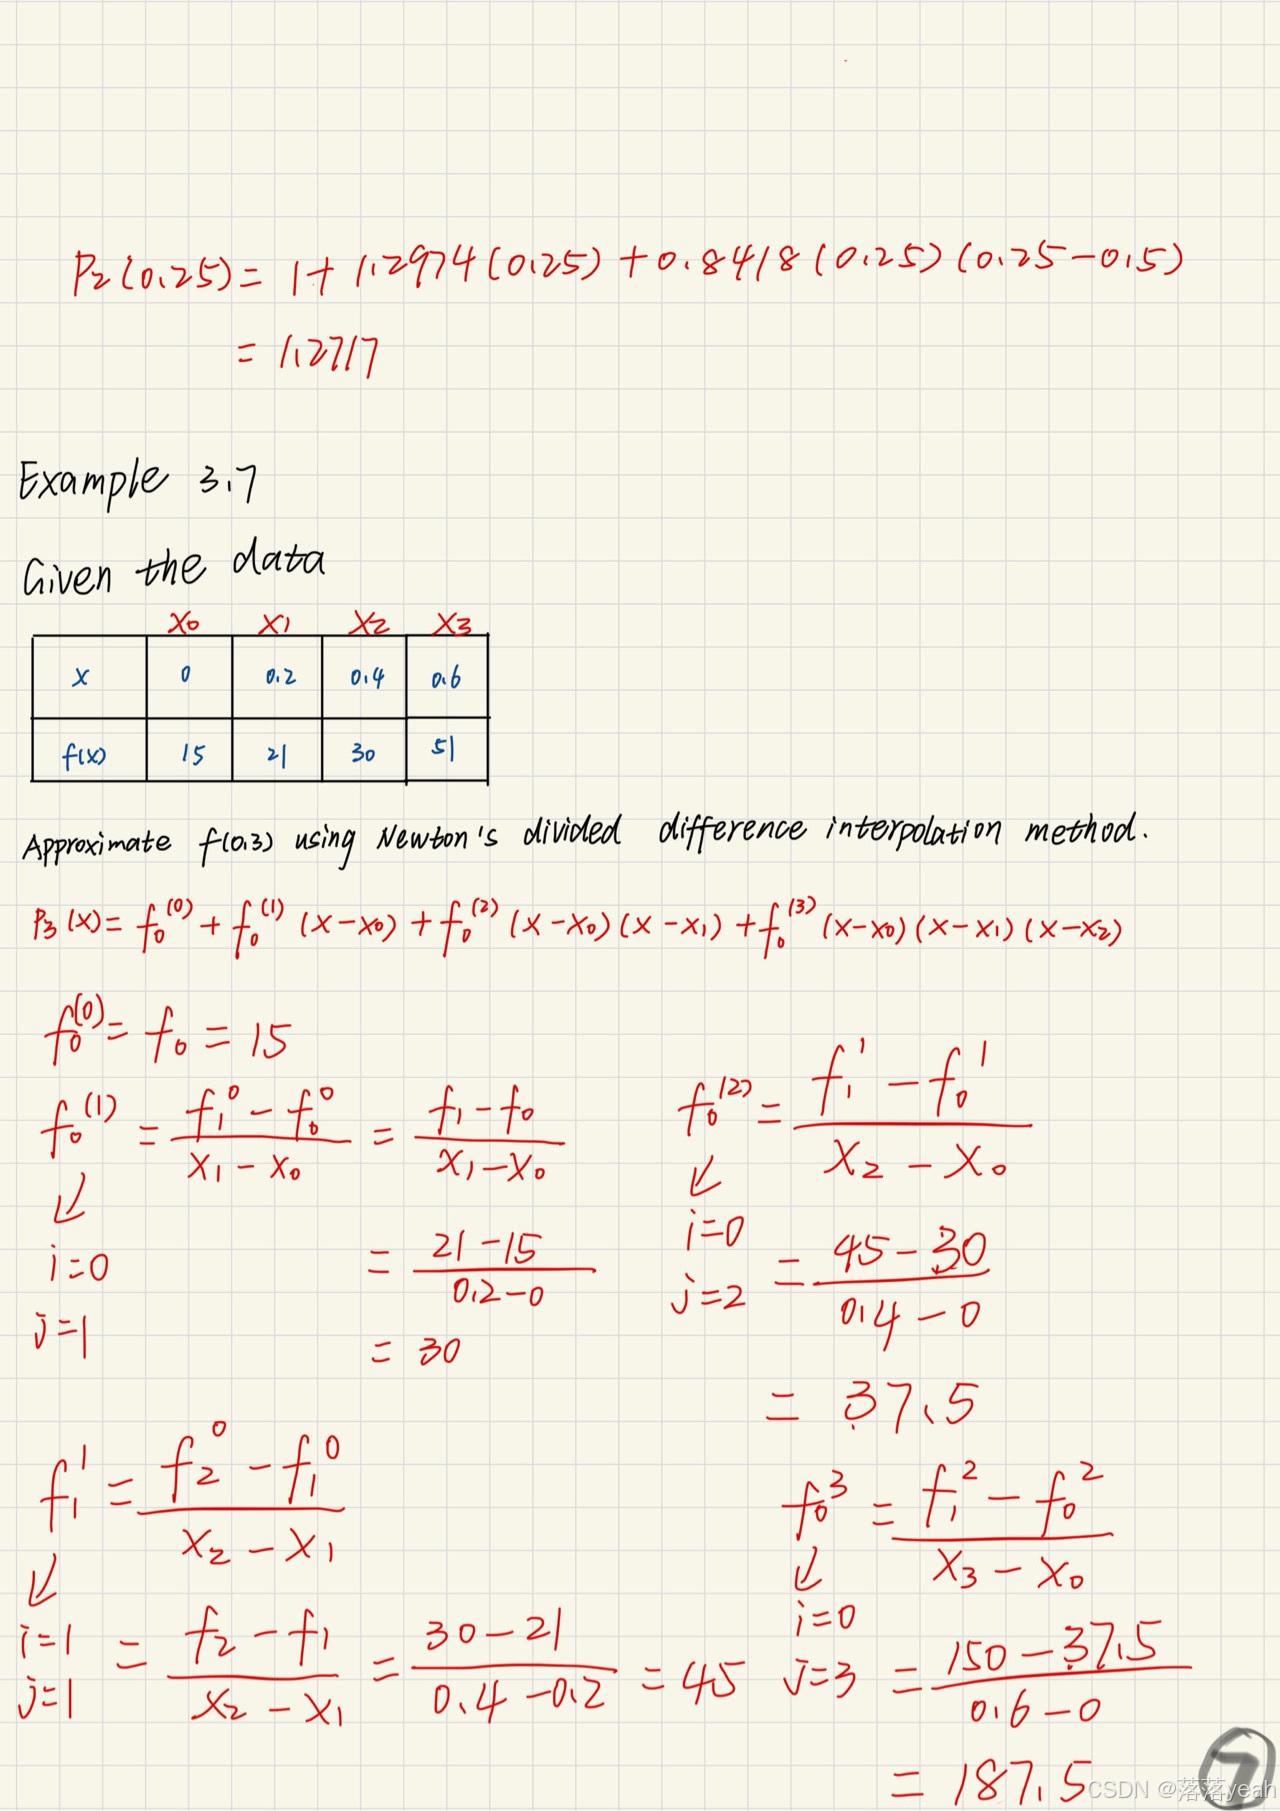 P₂(0.25) = 1 + 1.2974(0.25) + 0.8418(0.25)(0.25-0.5)
= 1.2717
Example 3.7
Given the data
x₀ x₁ x₂ x₃
x 0 0.2 0.4 0.6
f(x) 15 21 30 51
Approximate f(0.3) using Newton's divided difference interpolation method.
P₃(x) = f₀⁽⁰⁾ + f₀⁽¹⁾(x-x₀) + f₀⁽²⁾(x-x₀)(x-x₁) + f₀⁽³⁾(x-x₀)(x-x₁)(x-x₂)
f₀⁽⁰⁾ = f₀ = 15
f₀⁽¹⁾ = (f₁⁰ - f₀⁰)/(x₁ - x₀) = (f₁ - f₀)/(x₁ - x₀)
↙
i=0
j=1
= (21 - 15)/(0.2 - 0)
= 30
f₁¹ = (f₂⁰ - f₁⁰)/(x₂ - x₁)
↙
i=1
j=1
= (f₂ - f₁)/(x₂ - x₁) = (30 - 21)/(0.4 - 0.2) = 45
f₀⁽²⁾ = (f₁¹ - f₀¹)/(x₂ - x₀)
↙
i=0
j=2
= (45 - 30)/(0.4 - 0)
= 37.5
f₀³ = (f₁² - f₀²)/(x₃ - x₀)
↙
i=0
j=3
= (150 - 37.5)/(0.6 - 0)
= 187.5
7
CSDN @落落yeah